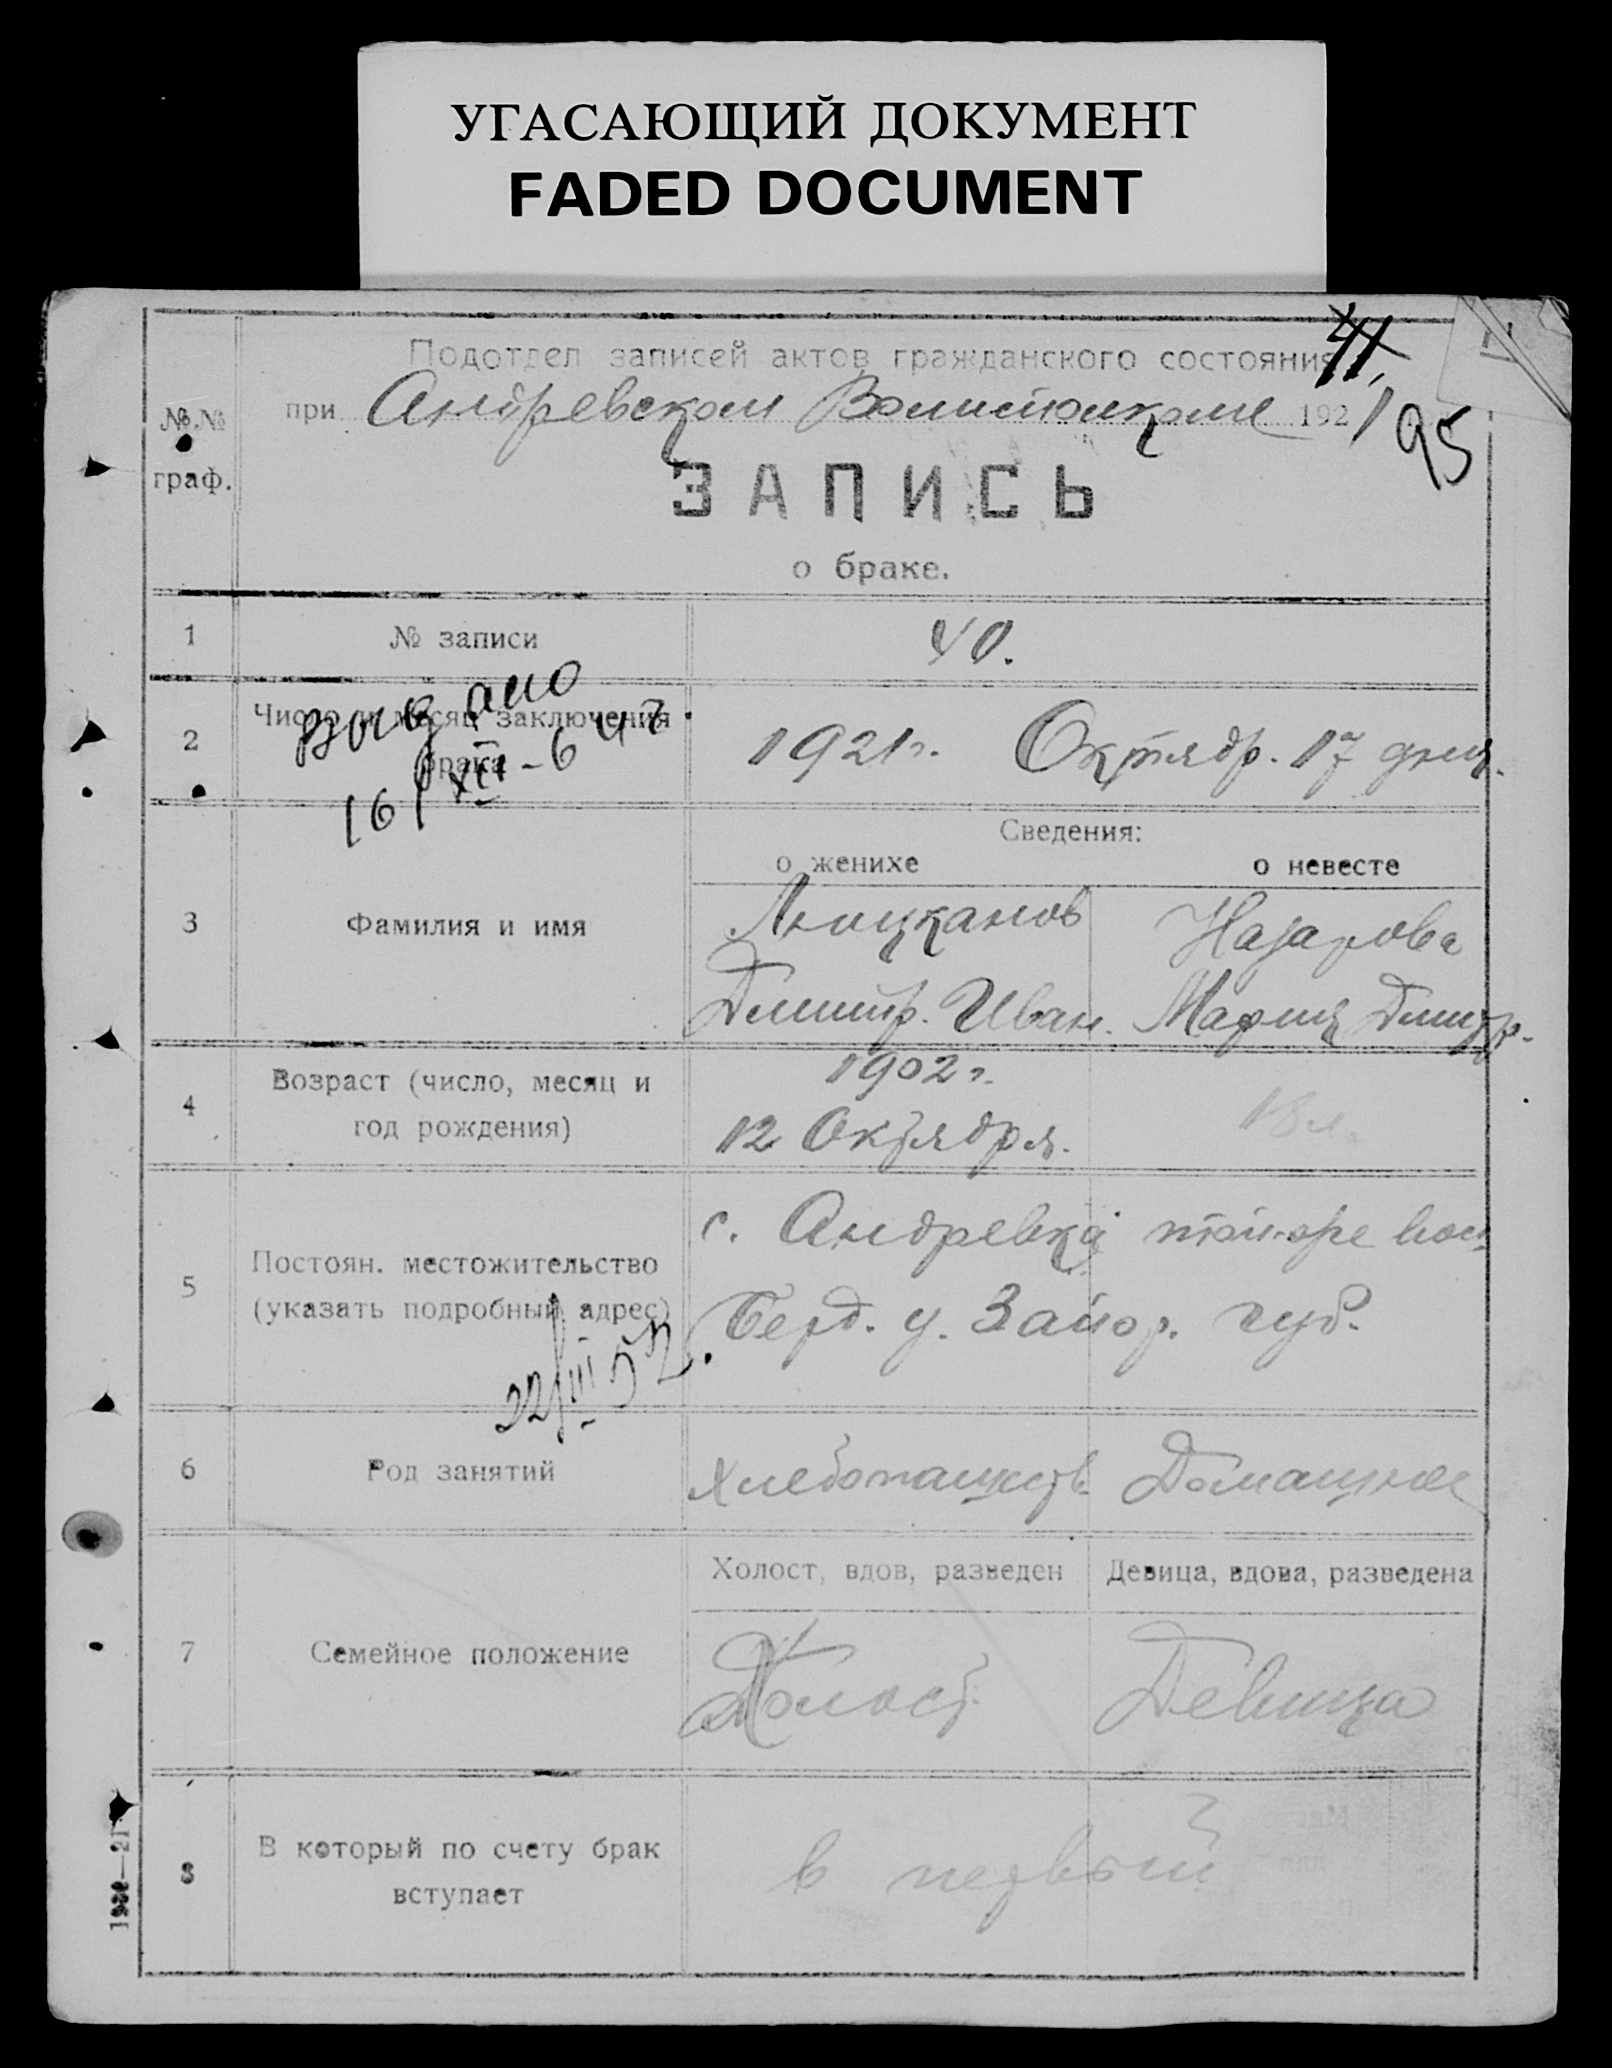 УГАСАЮЩИЙ ДОКУМЕНТ
FADED DOCUMENT
41
95
Подотдел записей актов гражданского состояния
при Андревском 1921
№№
граф.
ЗАПИСЬ
о браке.
1 № записи 40.
2 Число и месяц заключения
брака
1921 г. Октябр. 17 дня.
Выдано
16/XII-64 г.
Сведения:
о женихе о невесте
3 Фамилия и имя
Назарова
Дмитр. Иван. Мария Дмитр.
4 Возраст (число, месяц и
год рождения)
1902 г.
12 Октября. 18 л.
5 Постоян. местожительство
(указать подробный адрес)
с. Андревка той-же вол.
Берд. у. Запор. губ.
22/III 52.
6 Род занятий Хлебопашеств. Домашнее
Холост, вдов, разведен Девица, вдова, разведена
7 Семейное положение Холост Девица
8 В который по счету брак
вступает
в первый